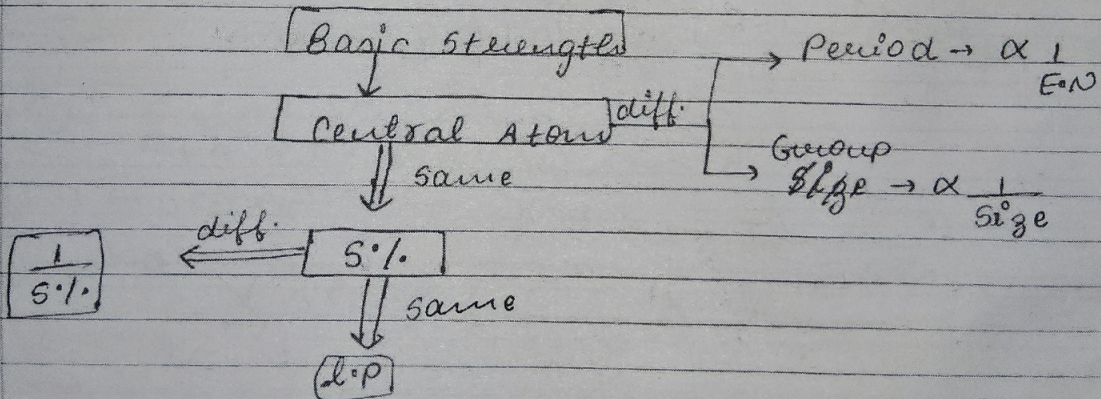 Basic Strength
Period → ∝ 1
E.N
Central Atom diff.
Group
Size → ∝ 1/Size
same
diff.
1/S%
S%
same
l.p